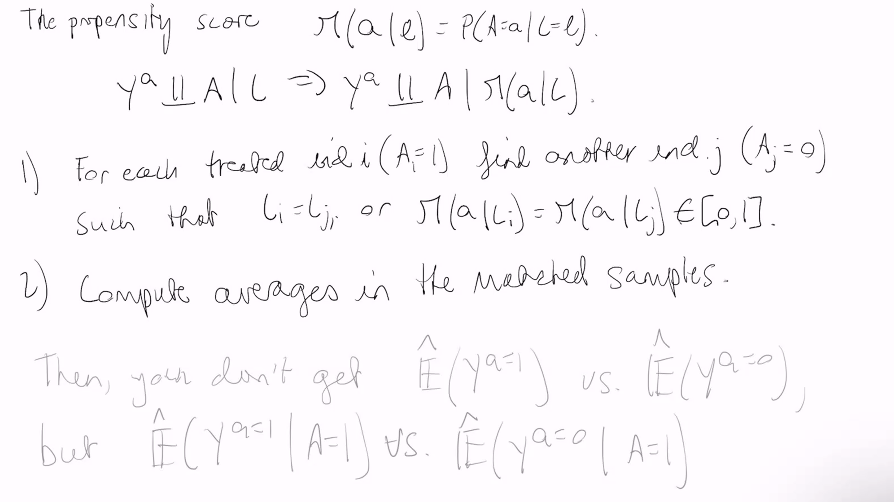 The propensity score π(a|l) = P(A=a|L=l).
Yᵃ ⫫ A|L ⇒ Yᵃ ⫫ A|π(a|L).
1) For each treated ind i (Aᵢ=1) find another ind. j (Aⱼ=0)
such that Lᵢ=Lⱼ, or π(a|Lᵢ) = π(a|Lⱼ) ∈ [0,1].
2) Compute averages in the matched samples.
Then, you don't get Ê(Yᵃ⁼¹) vs. Ê(Yᵃ⁼⁰),
but Ê(Yᵃ⁼¹|A=1) vs. Ê(Yᵃ⁼⁰|A=1)